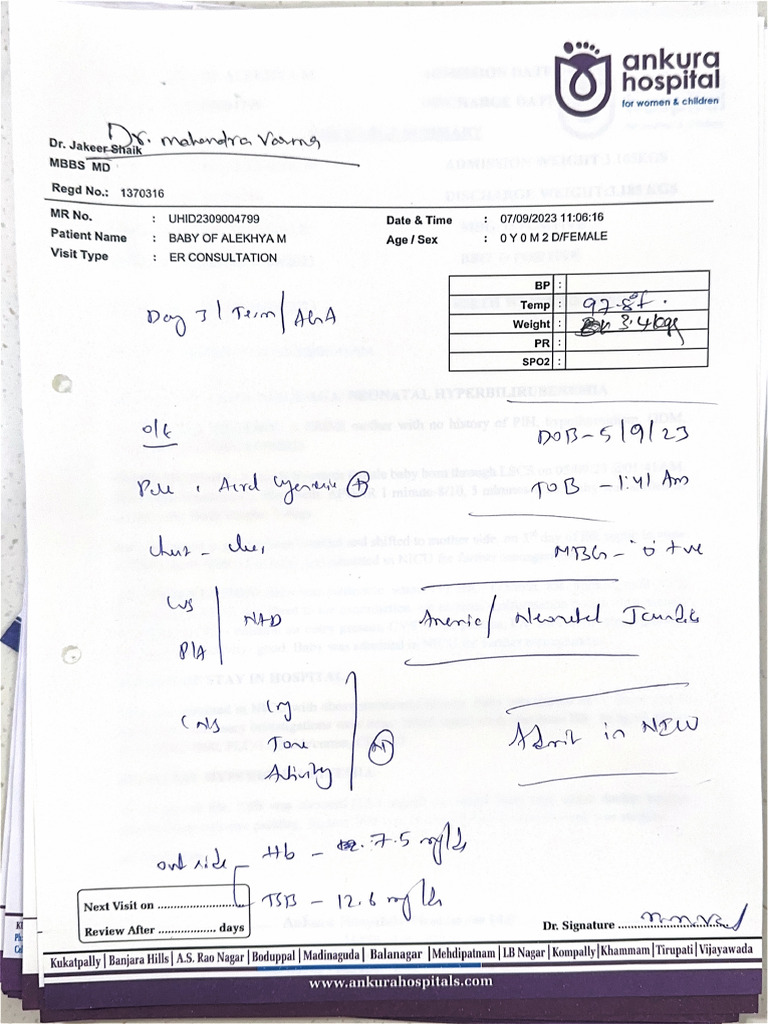 ankura
hospital
for women & children
Dr. Jakeer Shaik Dr. mahendra varma
MBBS MD
Regd No.: 1370316
MR No. : UHID2309004799
Patient Name : BABY OF ALEKHYA M
Visit Type : ER CONSULTATION
Date & Time : 07/09/2023 11:06:16
Age / Sex : 0 Y 0 M 2 D/FEMALE
BP :
Temp : 97.8°f.
Weight : 3.4kgs
PR :
SPO2 :
Day 3 / Term / AGA
O/E
DOB - 5/9/23
Pale, +
TOB - 1:41 Am
Chest - clear
MBG - 'o' +ve
CVS
P/A
NAD
Anemic / Neonatal Jaundice
CNS
Cry
Tone
Activity
Admit in NICU
out side - Hb - 7.5 mg/dl
TSB - 12.6 mg/dl
Next Visit on
Review After days
Dr. Signature
Kukatpally | Banjara Hills | A.S. Rao Nagar | Boduppal | Madinaguda | Balanagar | Mehdipatnam | LB Nagar | Kompally | Khammam | Tirupati | Vijayawada
www.ankurahospitals.com